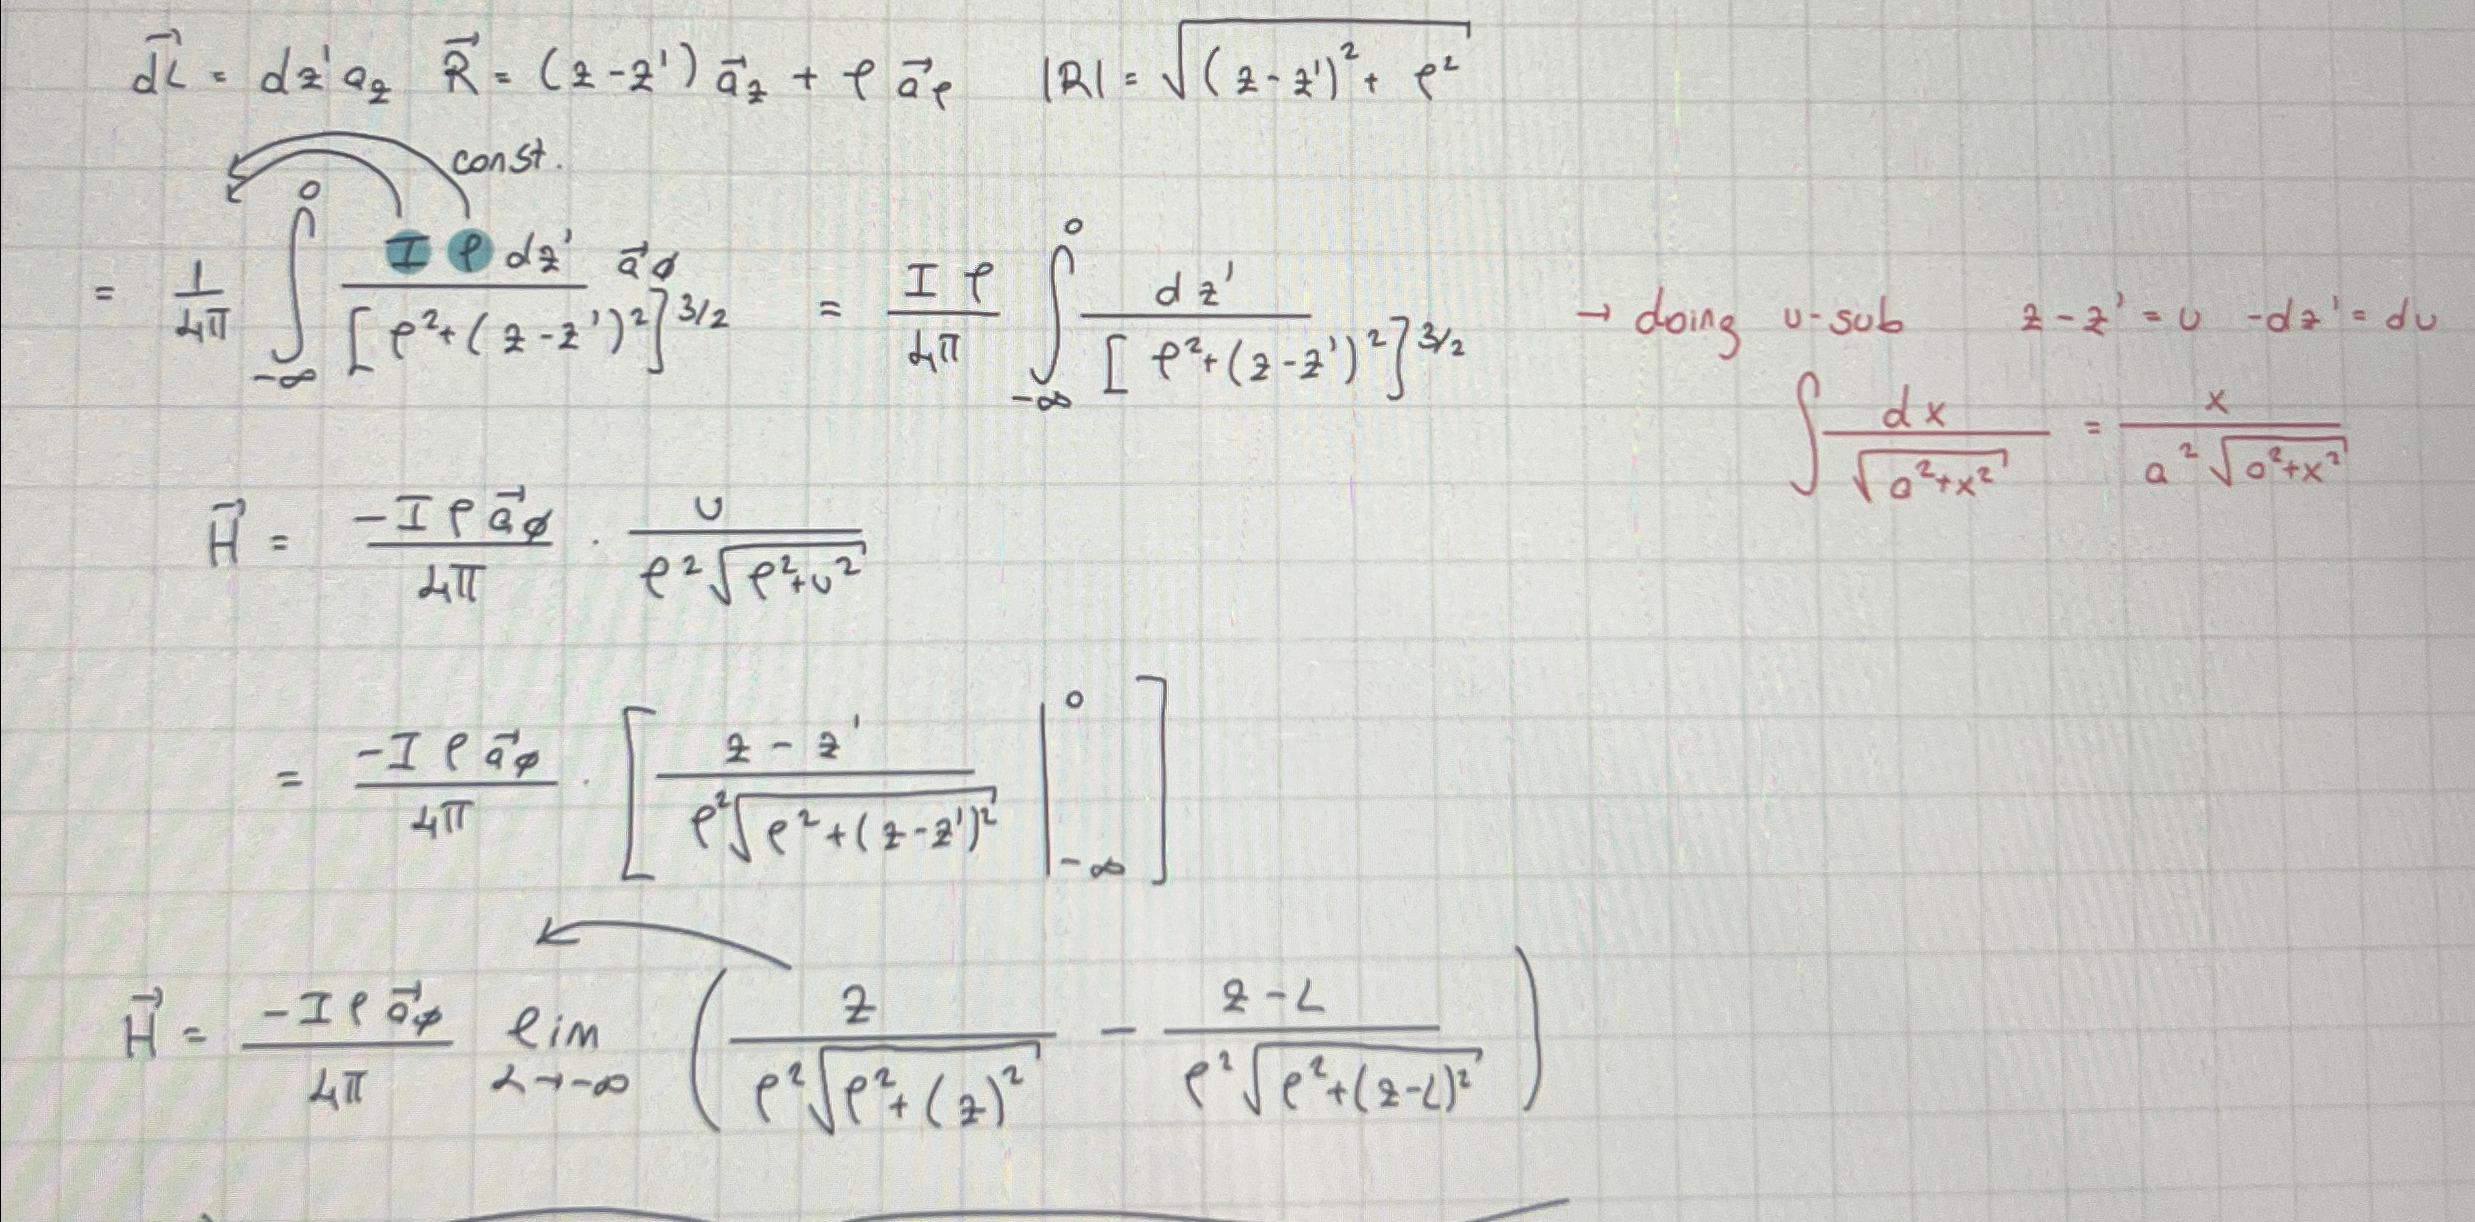 $\vec{dL} = dz' a_z \quad \vec{R} = (z-z')\vec{a}_z + \rho\,\vec{a}_\rho \quad |R| = \sqrt{(z-z')^2 + \rho^2}$
const.
$= \frac{1}{4\pi} \int_{-\infty}^{0} \frac{I \rho\, dz'}{[\rho^2 + (z-z')^2]^{3/2}} \vec{a}_\phi = \frac{I\rho}{4\pi} \int_{-\infty}^{0} \frac{dz'}{[\rho^2 + (z-z')^2]^{3/2}}$ → doing u-sub $z-z' = u \quad -dz' = du$
$\int \frac{dx}{\sqrt{a^2+x^2}} = \frac{x}{a^2\sqrt{a^2+x^2}}$
$\vec{H} = \frac{-I\rho\,\vec{a}_\phi}{4\pi} \cdot \frac{u}{\rho^2\sqrt{\rho^2+u^2}}$
$= \frac{-I\rho\,\vec{a}_\phi}{4\pi} \cdot \left[ \frac{z-z'}{\rho^2\sqrt{\rho^2+(z-z')^2}} \Big|_{-\infty}^{0} \right]$
$\vec{H} = \frac{-I\rho\,\vec{a}_\phi}{4\pi} \lim_{L \to -\infty} \left( \frac{z}{\rho^2\sqrt{\rho^2+(z)^2}} - \frac{z-L}{\rho^2\sqrt{\rho^2+(z-L)^2}} \right)$